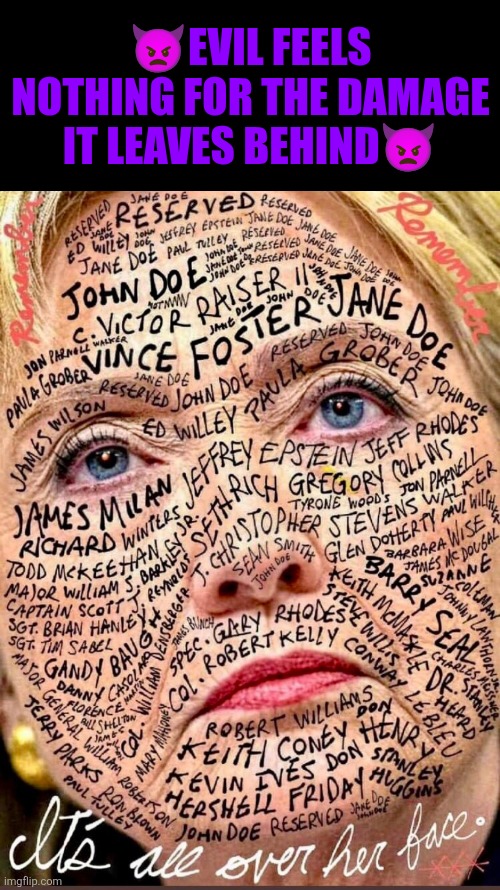 👿EVIL FEELS
NOTHING FOR THE DAMAGE
IT LEAVES BEHIND👿
Remember
Remember
JANE DOE
RESERVED
RESERVED
RESERVED
JANE DOE
ED WILLEY
JOHN DOE
JEFFREY EPSTEIN
JANE DOE
JANE DOE
JANE DOE
PAUL TULLEY
RESERVED
JOHN DOE
RESERVED
JANE DOE
JOHN DOE
C. VICTOR RAISER II
JANE DOE
JOHN DOE
JANE DOE
JON PARNELL WALKER
VINCE FOSTER
PAULA GROBER
JANE DOE
RESERVED
JOHN DOE
RESERVED
JOHN DOE
PAULA GROBER
JOHN DOE
JAMES WILSON
ED WILLEY
JEFFREY EPSTEIN
JEFF RHODES
JAMES MILAN
SETH RICH
GREGORY COLLINS
RICHARD WINTERS
TYRONE WOODS
JON PARNELL WALKER
TODD MCKEEHAN
J. CHRISTOPHER STEVENS
MAJOR WILLIAM S. BARKLEY JR.
SEAN SMITH
GLEN DOHERTY
PAUL WILCHER
CAPTAIN SCOTT J. REYNOLDS
JOHN DOE
BARBARA WISE
JAMES MCDOUGAL
SGT. BRIAN HANLEY
BARRY SEAL
SUZANNE COLEMAN
SGT. TIM SABEL
KEITH MCMASKLE
GANDY BAUGH
SPEC. GARY RHODES
STEVE WILLIS
DANNY CASOLARO
COL. WILLIAM DENSBERGER
COL. ROBERT KELLY
CONWAY LEBLEU
DR. STANLEY HEARD
FLORENCE MARTIN
BILL SHELTON
MARY MAHONEY
MAJOR GENERAL WILLIAM ROBERTSON
JERRY PARKS
ROBERT WILLIAMS
KEITH CONEY
DON HENRY
KEVIN IVES
DON STANLEY HUGGINS
HERSHELL FRIDAY
RON BROWN
PAUL TULLEY
JOHN DOE
RESERVED
JANE DOE
It's all over her face.
imgflip.com